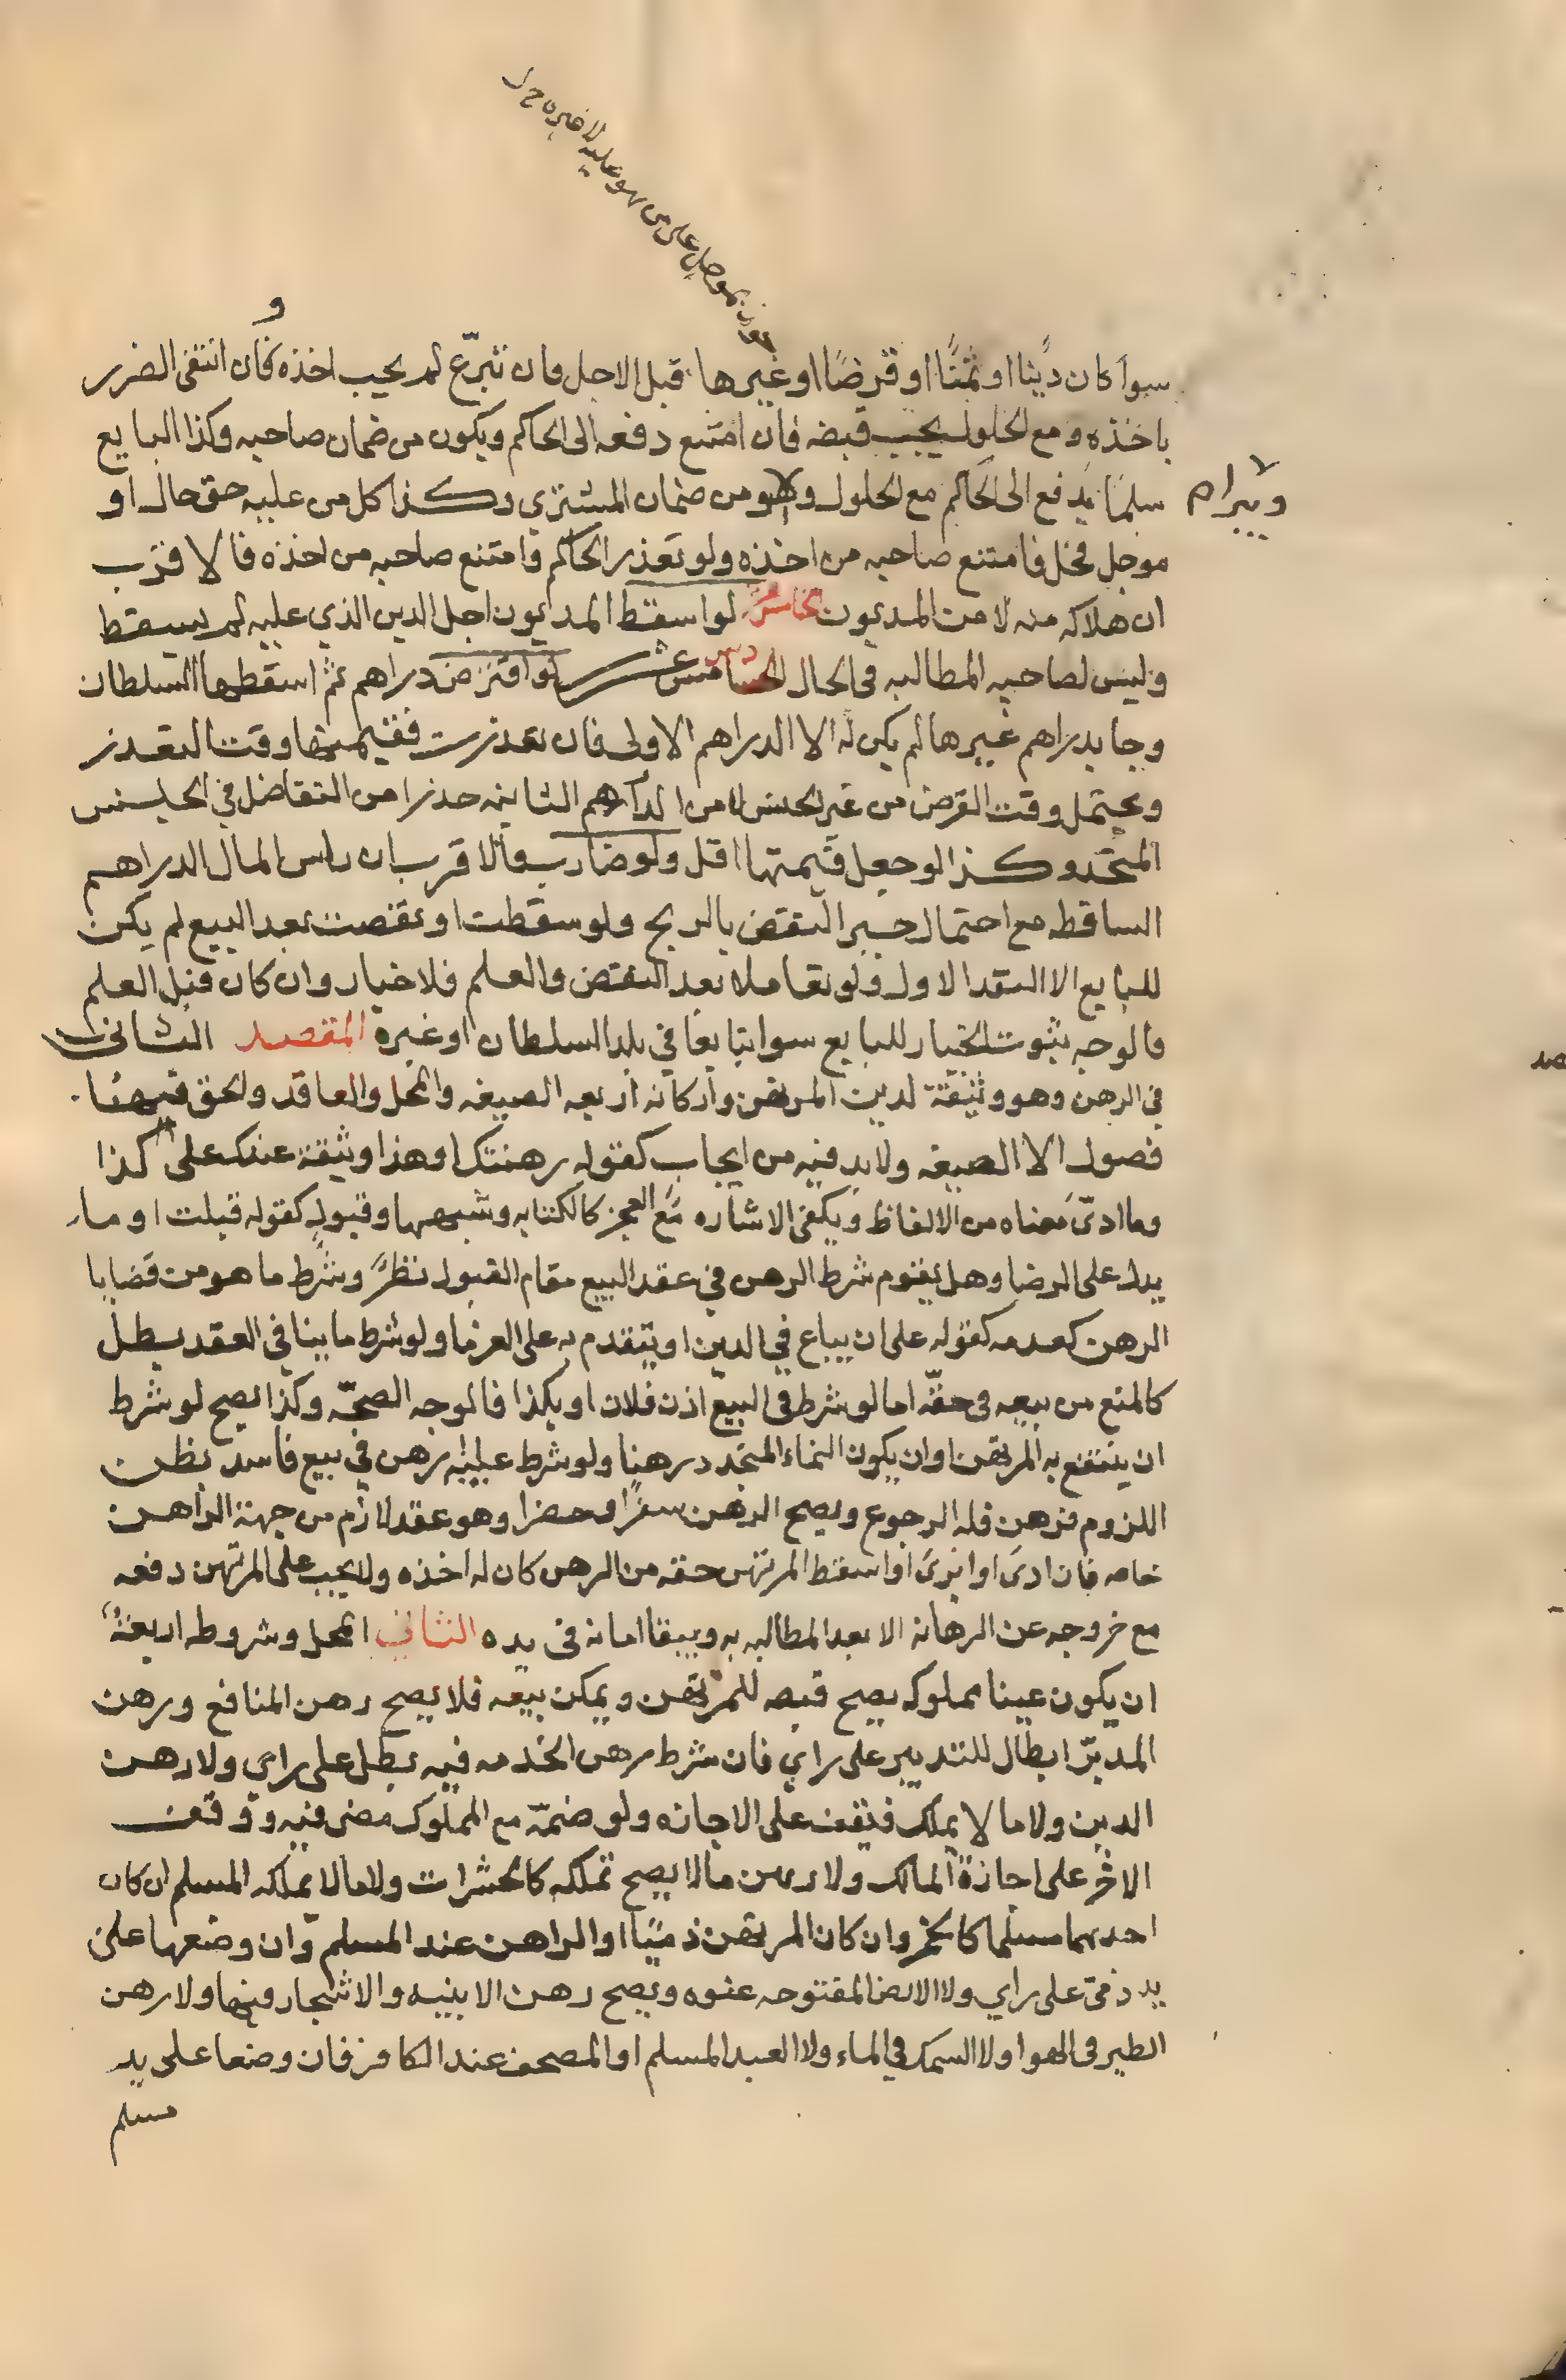 سوآ كان دينا او ثمنًا او قرضًا او غيرها قبل الاجل فان تبرّع لم يجب اخذه وان انتفى الضرر
باخذه ومع الحلول يجب قبضه فان امتنع دفعه الى الحاكم ويكون من ضمان صاحبه وكذا البايع
سلمًا يدفع الى الحاكم مع الحلول وهو من ضمان المشتري وكذا كل من عليه حق حال او
موجل فحل فامتنع صاحبه من اخذه ولو تعذر الحاكم وامتنع صاحبه من اخذه فالاقرب
ان هلاكه منه لا من المديون لو اسقط المديون اجل الدين الذي عليه لم يسقط
وليس لصاحبه المطالبه في الحال عشر لو اقترض دراهم ثم اسقطها السلطان
وجا بدراهم غيرها لم يكن له الا الدراهم الاولى فان تعذرت فقيمتها وقت التعذر
ويحتمل وقت القرض من غير الجنس لا من الدراهم الثانيه حذرا من التفاضل في الجنس
المتحد وكذا لو جعل قيمتها اقل ولو ضارب فالاقرب ان راس المال الدراهم
الساقطه مع احتمال جبر النقص بالربح ولو سقطت او نقصت بعد البيع لم يكن
للبايع الا النقد الاول ولو تعاملا بعد النقص والعلم فلا خيار وان كان قبل العلم
فالوجه ثبوت الخيار للبايع سوا تبايعا في بلد السلطان او غيره المقصد الثاني
في الرهن وهو وثيقة لدين المرتهن واركانه اربعه الصيغه والمحل والعاقد والحق فهنا
فصول الا الصيغه ولابد فيه من ايجاب كقوله رهنتك او هذا وثيقة عندك على كذا
وما ادّى معناه من الالفاظ ويكفى الاشاره مع العجز كالكتابه وشبهها وقبول كقوله قبلت او ما
يدل على الرضا وهل يقوم شرط الرهن في عقد البيع مقام القبول نظر وشرط ما هو من قضايا
الرهن كعدمه كقوله على ان يباع في الدين او يتقدم به على الغرما ولو شرط ما ينافي العقد يبطل
كالمنع من بيعه في حقّه اما لو شرط في البيع اذن فلان او بكذا فالوجه الصحّه وكذا يصح لو شرط
ان ينتفع به المرتهن او ان يكون النماء المتجدد رهنا ولو شرط عليه رهن في بيع فاسد فظن
اللزوم فرهن فله الرجوع ويصح الرهن سفرًا وحضرا وهو عقد لازم من جهة الراهن
خاصه فان ادى او ابرئ او اسقط المرتهن حقه من الرهن كان له اخذه ولا يجب على المرتهن دفعه
مع خروجه عن الرهانه الا بعد المطالبه به ويبقا امانه في يده الثاني المحل وشروطه اربعة
ان يكون عينا مملوكه يصح قبضه للمرتهن ويمكن بيعه فلا يصح رهن المنافع ورهن
المدبّر ابطال للتدبير على راي فان شرط رهن الخدمه فيه بطل على راي ولا رهن
الدين ولا ما لا يملك فيقف على الاجازه ولو ضمّه مع المملوك مضى فيه ووقف
الاخر على اجازة المالك ولا رهن مالا يصح تملكه كالحشرات ولا مالا يملكه المسلم ان كان
احدهما مسلما كالخمر وان كان المرتهن ذميًا او الراهن عند المسلم وان وضعها على
يد ذمّى على راي ولا الارض المفتوحه عنوه ويصح رهن الابنيه والاشجار فيها ولا رهن
الطير في الهوا ولا السمك في الماء ولا العبد المسلم او المصحف عند الكافر فان وضعا على يد
مسلم